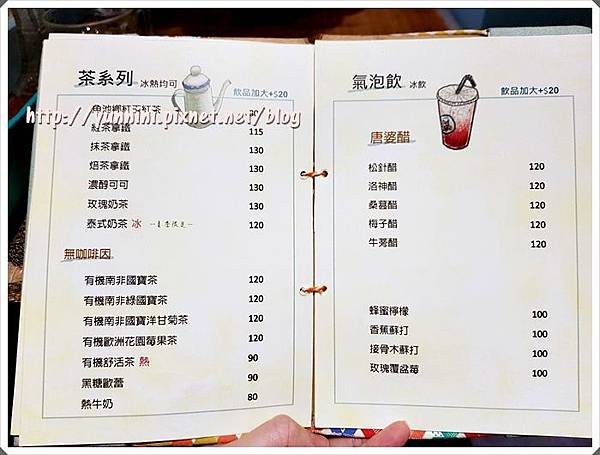 茶系列 冰熱均可
飲品加大+$20
魚池鄉紅玉紅茶
http://yunnini.pixnet.net/blog
紅茶拿鐵 115
抹茶拿鐵 130
焙茶拿鐵 130
濃醇可可 130
玫瑰奶茶 130
泰式奶茶 冰 120
無咖啡因
有機南非國寶茶 120
有機南非綠國寶茶 120
有機南非國寶洋甘菊茶 120
有機歐洲花園莓果茶 120
有機舒活茶 熱 90
黑糖歐蕾 90
熱牛奶 80
氣泡飲 冰飲
飲品加大+$20
唐婆醋
松針醋 120
洛神醋 120
桑葚醋 120
梅子醋 120
牛蒡醋 120
蜂蜜檸檬 100
香蕉蘇打 100
接骨木蘇打 100
玫瑰覆盆莓 100